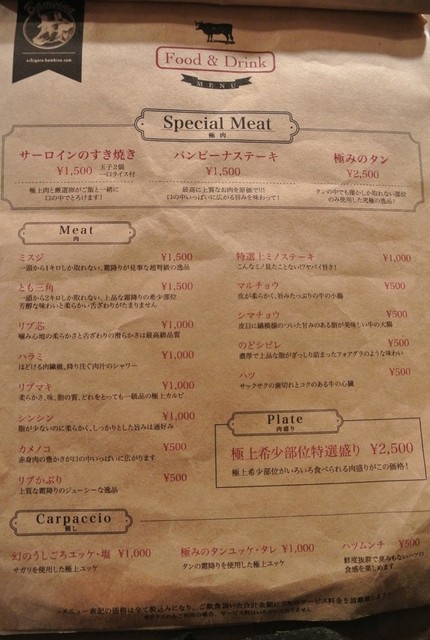 Food & Drink
MENU
Special Meat
極肉
サーロインのすき焼き
¥1,500 玉子2個 一口ライス付
極上肉と厳選卵がご飯と一緒に
口の中でとろけます!
バンビーナステーキ
¥1,500
最高に上質なお肉を原価で!!
口の中いっぱいに広がる旨みを味わって!
極みのタン
¥2,500
タンの中でも僅かしか取れない部位
のみ使用した究極の逸品!
Meat
肉
ミスジ ¥1,500
一頭から1キロしか取れない、霜降りが見事な超特級の逸品
とも三角 ¥1,500
一頭から2キロしか取れない、上品な霜降りの希少部位
芳醇な味わいと柔らかい舌ざわりがたまりません
リブ芯 ¥1,000
噛み心地の柔らかさと舌ざわりの滑らかさは最高級品質
ハラミ ¥1,000
ほどける肉繊維、降り注ぐ肉汁のシャワー
リブマキ ¥1,000
柔らかさ、味、脂の質、どれをとっても一級品の極上カルビ
シンシン ¥1,000
脂が少ないのに柔らかく、しっかりとした旨みは通好み
カメノコ ¥500
赤身肉の豊かさが口の中いっぱいに広がります
リブかぶり ¥500
上質な霜降りのジューシーな逸品
特選上ミノステーキ ¥1,000
こんなミノ見たことない!?ヤバイ旨さ!
マルチョウ ¥500
皮が柔らかく、旨みたっぷりの牛の小腸
シマチョウ ¥500
皮目に縞模様のついた甘みのある脂が美味しい牛の大腸
のどシビレ ¥500
濃厚で上品な脂がぎっしり詰まったフォアグラのような味わい
ハツ ¥500
サックサックの歯切れとコクのある牛の心臓
Plate
肉盛り
極上希少部位特選盛り ¥2,500
極上希少部位がいろいろ食べられる肉盛りがこの価格!
Carpaccio
刺し
幻のうしごろユッケ・塩 ¥1,000
サガリを使用した極上ユッケ
極みのタンユッケ・タレ ¥1,000
タンの霜降りを使用した極上ユッケ
ハツムンチ ¥500
鮮度抜群で臭みもない
食感を楽しめます
メニュー表記の価格は全て税込みになり、ご飲食頂いた合計金額に